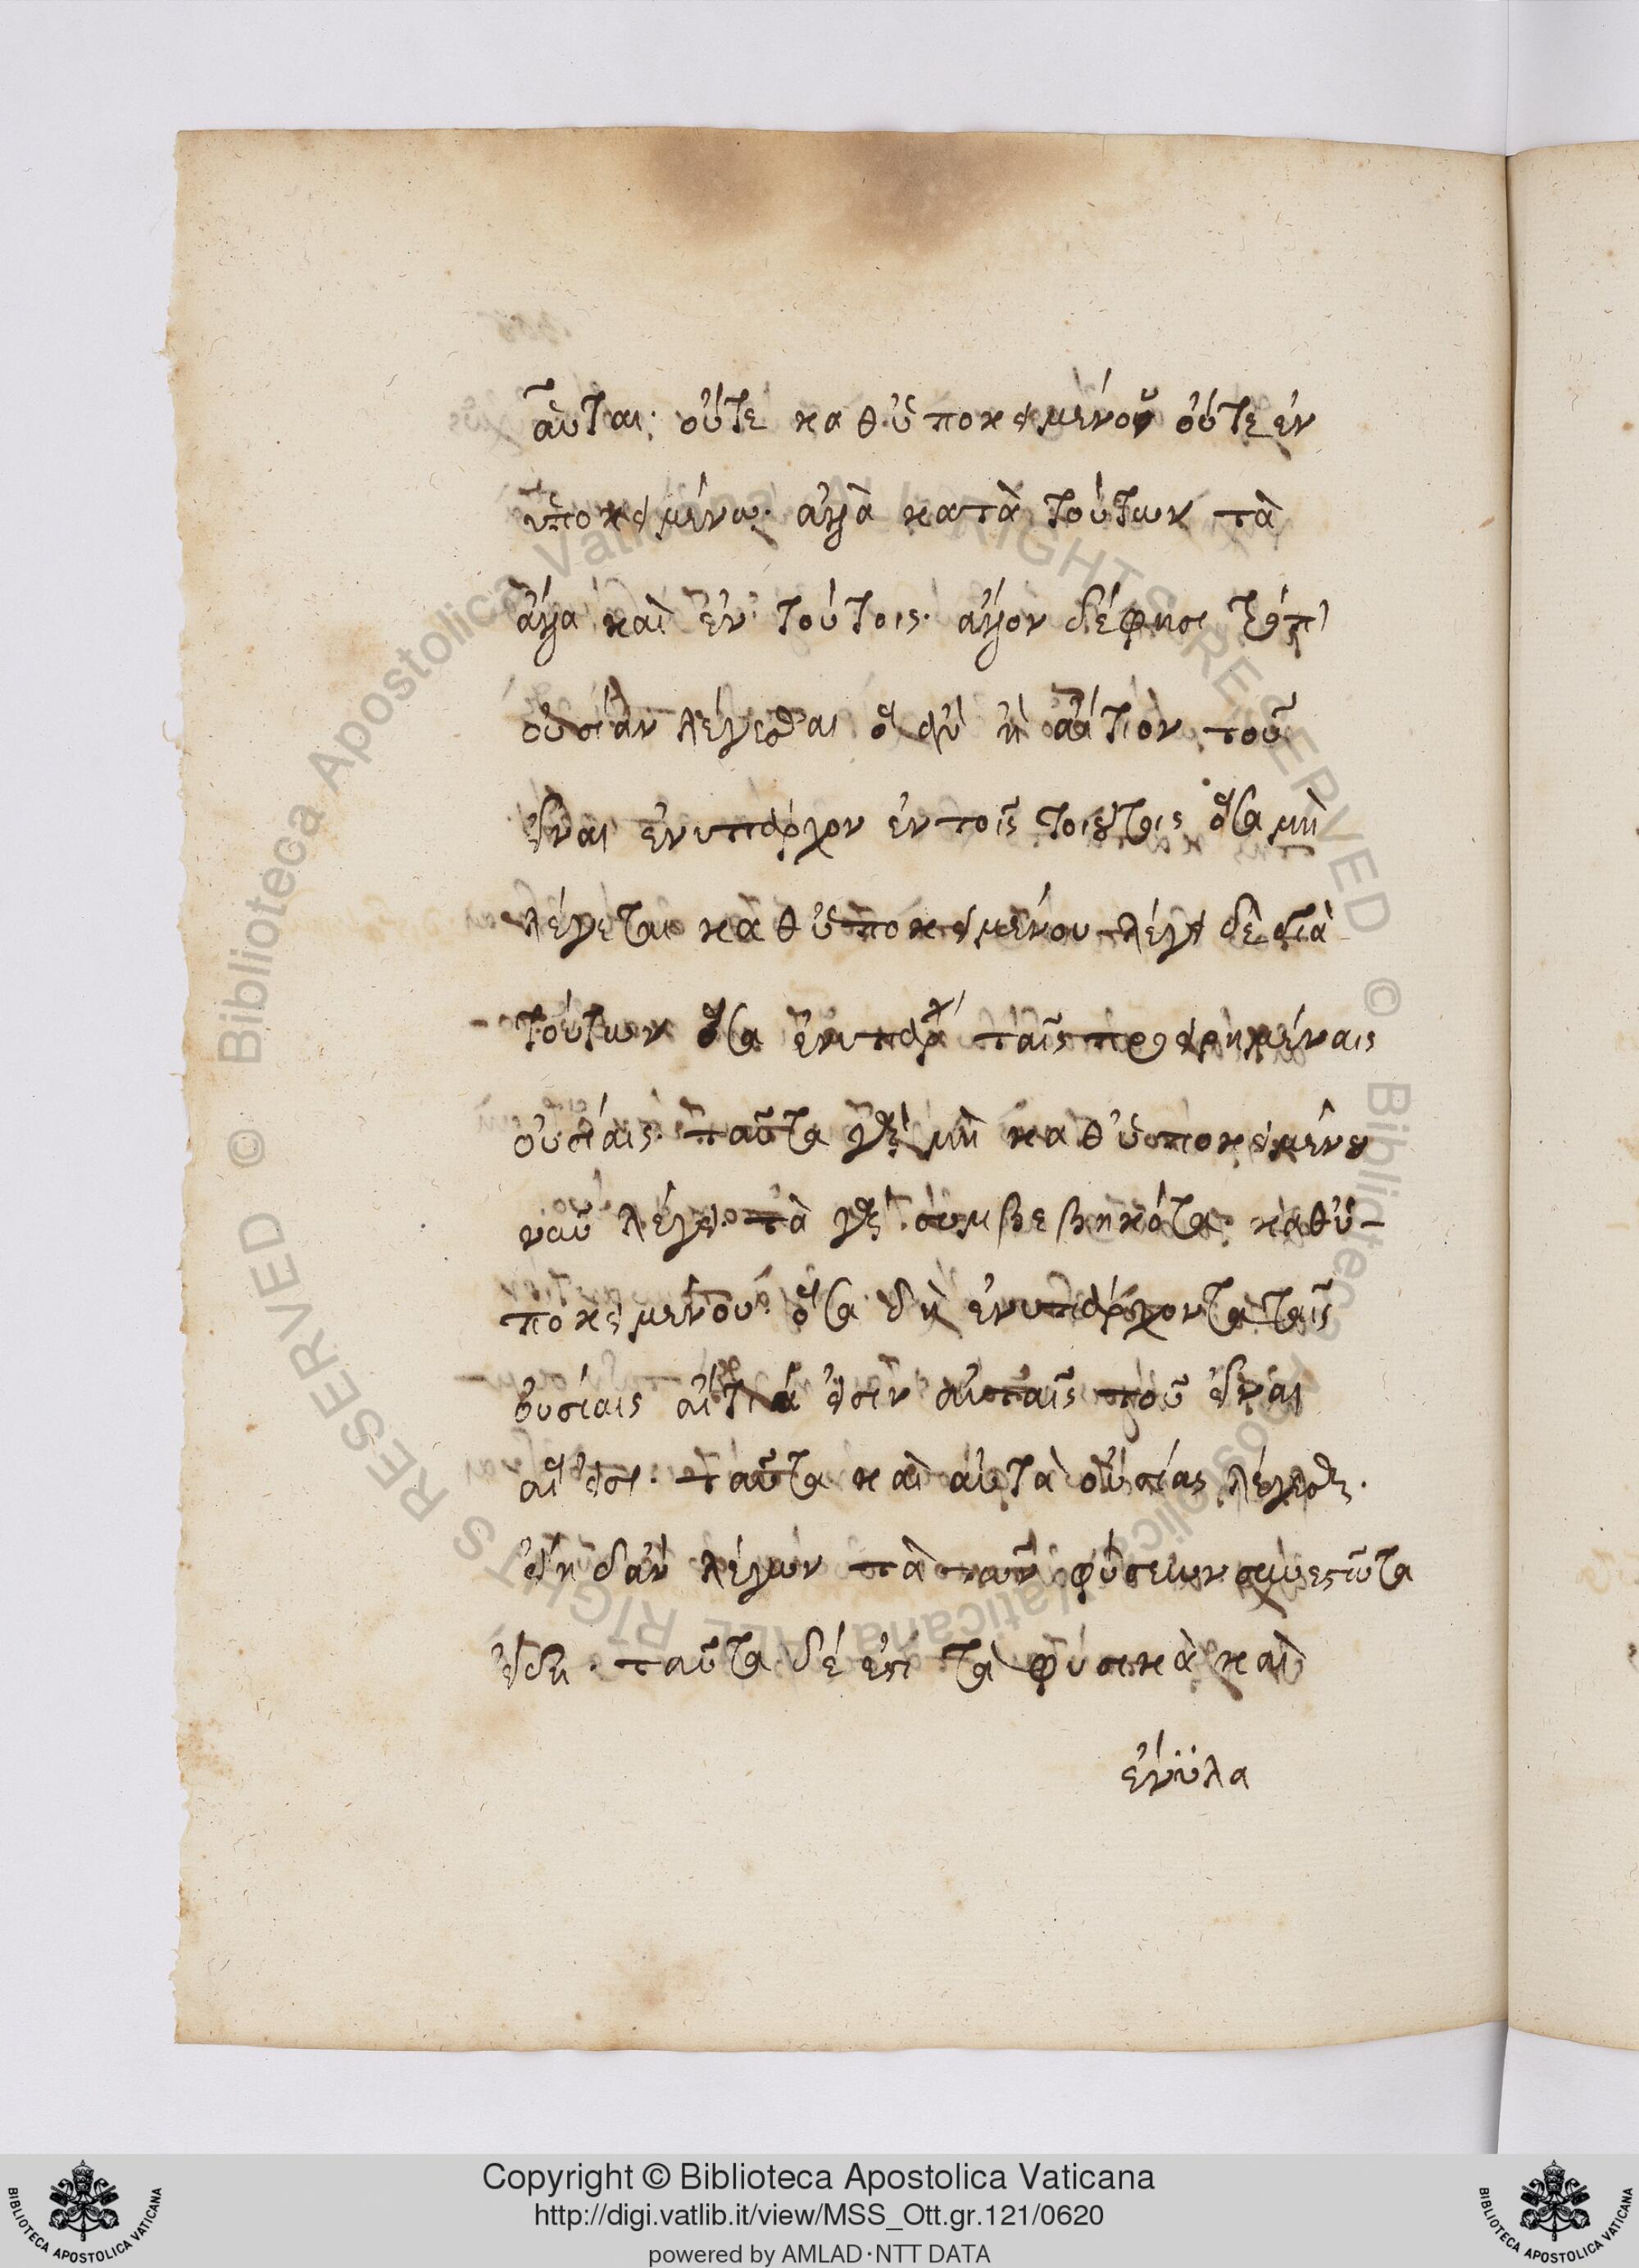 αὗται· οὔτε καθ ὑποκειμένου οὔτε ἐν
ὑποκειμένω· ἀλλὰ κατὰ τούτων τὰ
ἄλλα καὶ ἐν τούτοις· ἄλλον δέ φησι τρόπ
οὐσίαν λέγεσθαι ὃ ἂν ἦ αἴτιον τοῦ
εἶναι ἐνυπάρχον ἐν τοῖς τοιούτοις ὅσα μὴ
λέγεται καθ ὑποκειμένου λέγει δὲ διὰ
τούτων ὅσα ἐνυπάρχ ταῖς προειρημέναις
οὐσίαις· ταῦτα γὰρ μὴ καθ ὑποκειμένου
νῦν λέγει· τὰ γὰρ συμβεβηκότα καθ ὑ-
ποκειμένου· ὅσα δὴ ἐνυπάρχοντα ταῖς
οὐσίαις αἴτιά εἰσιν αὐταῖς τοῦ εἶναι
αἵ εἰσι· ταῦτα καὶ αὐτὰ οὐσίας λέγεσθαι·
εἴη δἂν λέγων τὰ τῶν φύσεων συνεστῶτα
εἴδη· ταῦτα δέ ἐστι τὰ φυσικὰ καὶ
ἐνϋλα
Copyright © Biblioteca Apostolica Vaticana
http://digi.vatlib.it/view/MSS_Ott.gr.121/0620
powered by AMLAD·NTT DATA
BIBLIOTECA APOSTOLICA VATICANA
BIBLIOTECA APOSTOLICA VATICANA
© Biblioteca Apostolica Vaticana ALL RIGHTS RESERVED
© Biblioteca Apostolica Vaticana ALL RIGHTS RESERVED